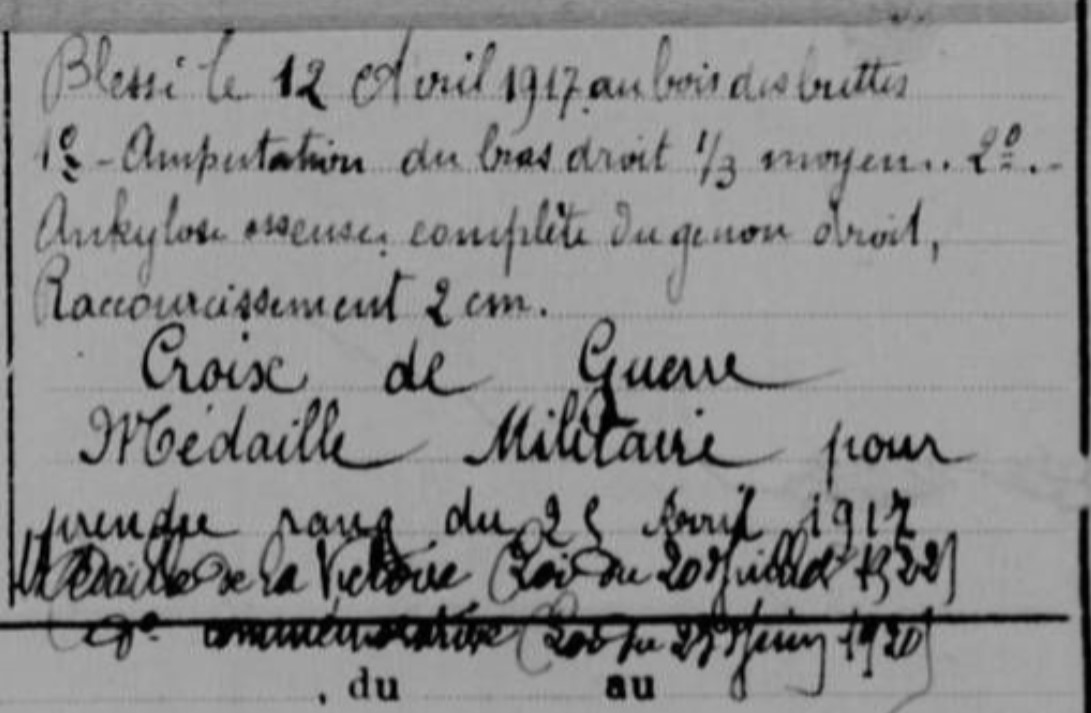 Blessé le 12 Avril 1917 au bois des buttes
1º - Amputation du bras droit 1/3 moyen.. 2º.-
Ankylose osseuse, complète du genou droit,
Raccourcissement 2 cm.
Croix de Guerre
Médaille Militaire pour
prendre rang du 25 Avril 1917
Médaille de la Victoire (Loi du 20 Juillet 1922)
dº commémorative (Loi du 23 Juin 1920)
. du au